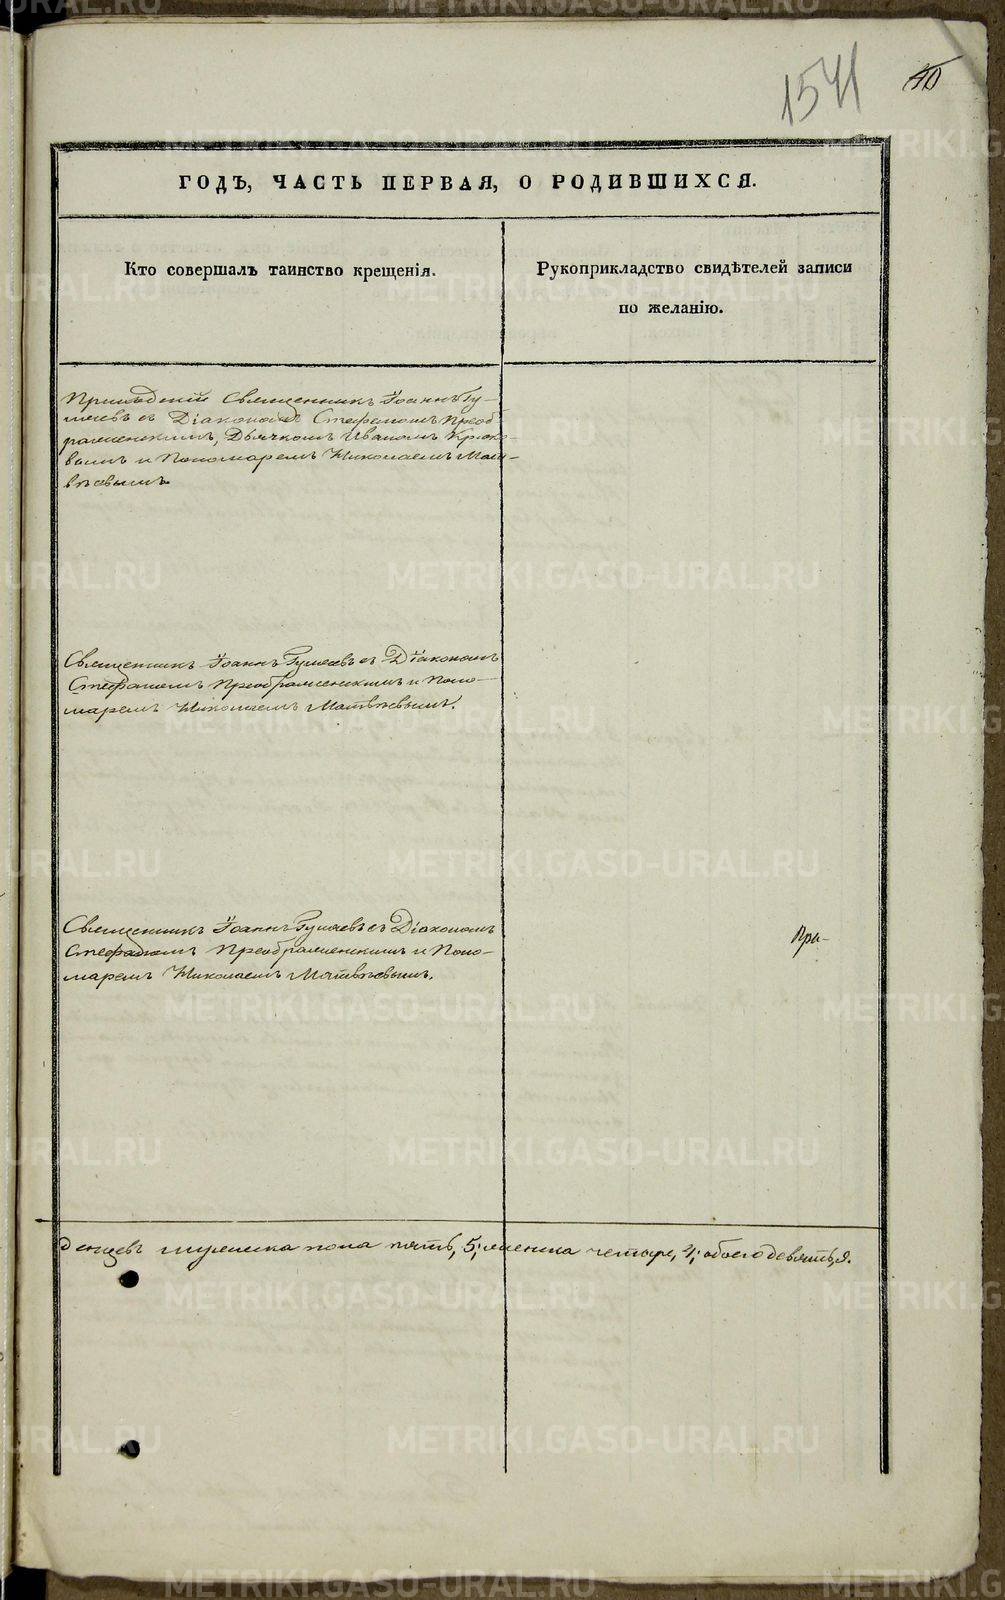 1541
40
ГОДЪ, ЧАСТЬ ПЕРВАЯ, О РОДИВШИХСЯ.
Кто совершалъ таинство крещенія.
Рукоприкладство свидѣтелей записи
по желанію.
Священникъ Іоаннъ Гу-
съ Діакономъ Стефаномъ Преоб-
раженскимъ, Дьячкомъ Иваномъ Крюко-
вымъ и Пономаремъ Николаемъ Мат-
вѣевымъ.
Священникъ Іоаннъ съ Діакономъ
Стефаномъ Преображенскимъ и Поно-
маремъ Николаемъ Матвѣевымъ.
Священникъ Іоаннъ съ Діакономъ
Стефаномъ Преображенскимъ и Поно-
маремъ Николаемъ Матвѣевымъ.
При-
денцевъ мужеска пола пять, 5; женска четыре, 4; обоего девять, 9.
METRIKI.GASO-URAL.RU